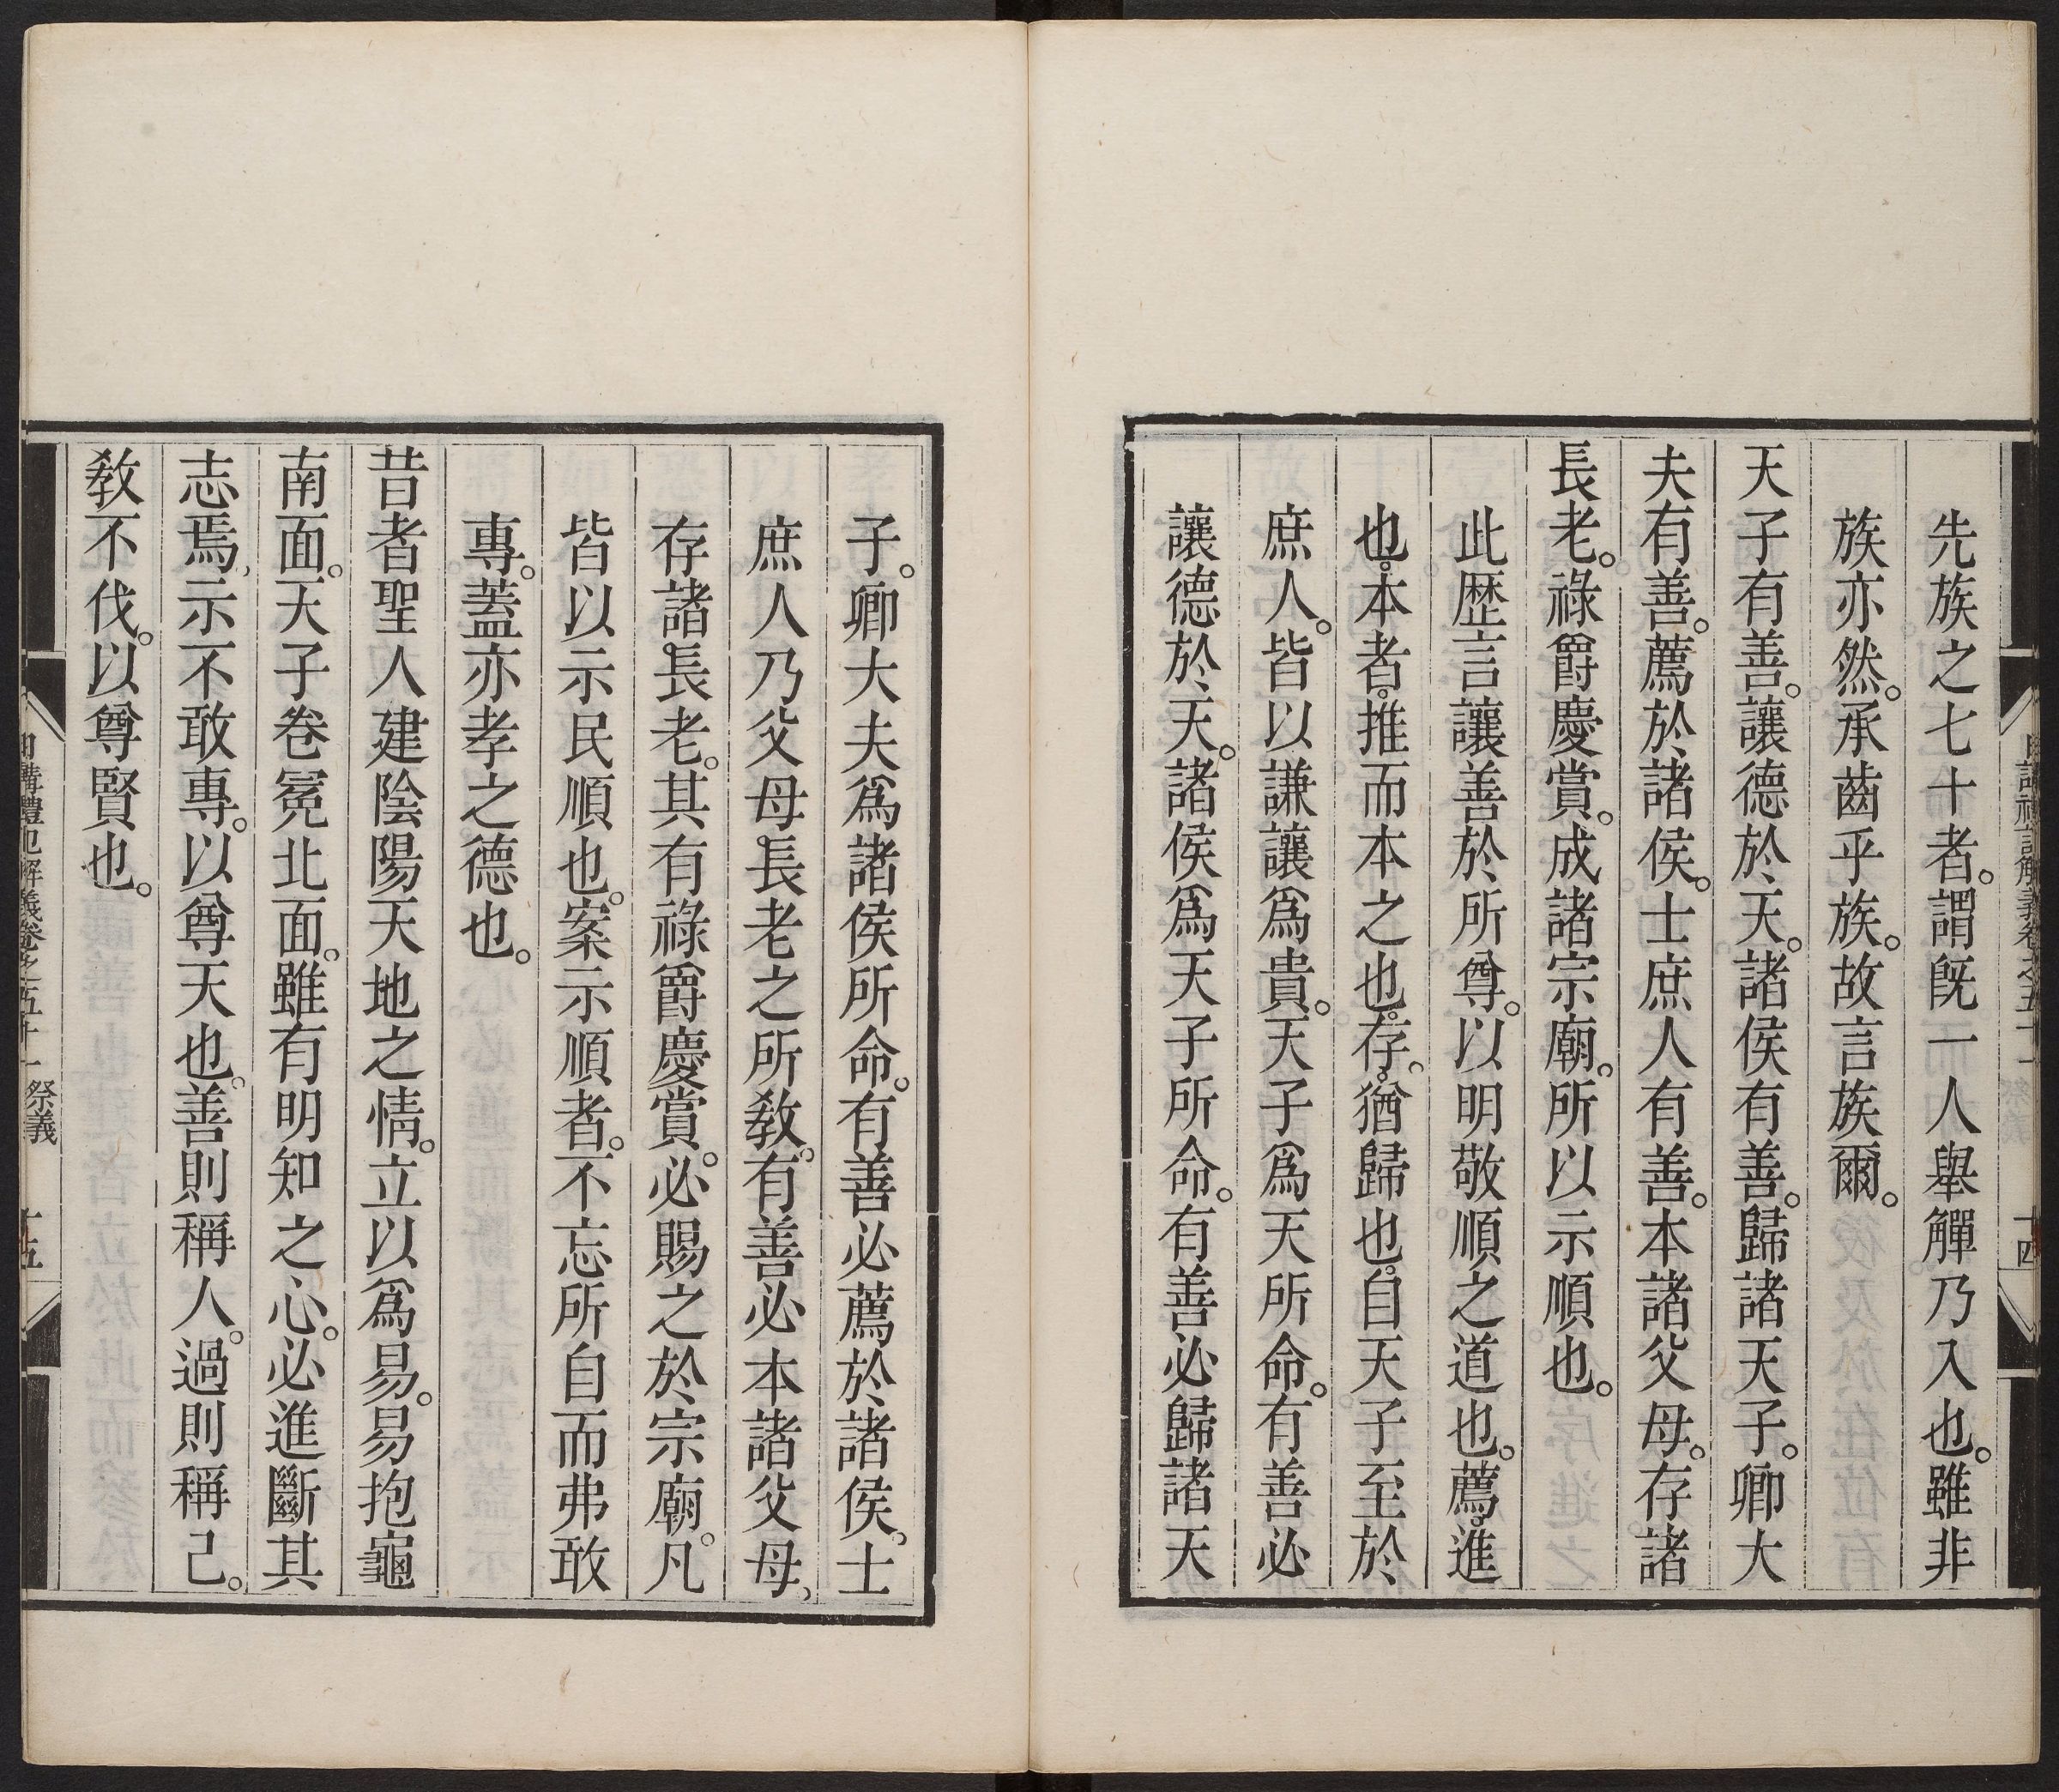 先族之七十者。謂旣一人舉觶乃入也。雖非
族亦然。承齒乎族。故言族爾。
天子有善。讓德於天。諸侯有善。歸諸天子。卿大
夫有善。薦於諸侯。士庶人有善。本諸父母。存諸
長老。祿爵慶賞。成諸宗廟。所以示順也。
此歷言讓善於所尊。以明敬順之道也。薦。進
也。本者。推而本之也。存。猶歸也。自天子至於
庶人。皆以謙讓爲貴。天子爲天所命。有善必
讓德於天。諸侯爲天子所命。有善必歸諸天
子。卿大夫爲諸侯所命。有善必薦於諸侯。士
庶人乃父母長老之所敎。有善必本諸父母、
存諸長老。其有祿爵慶賞。必賜之於宗廟。凡
皆以示民順也。案示順者。不忘所自而弗敢
專。蓋亦孝之德也。
昔者聖人建陰陽天地之情。立以爲易。易抱龜
南面。天子卷冕北面。雖有明知之心。必進斷其
志焉、示不敢專。以尊天也。善則稱人。過則稱己。
敎不伐。以尊賢也。
日講禮記解義卷之五十一 祭義 十五